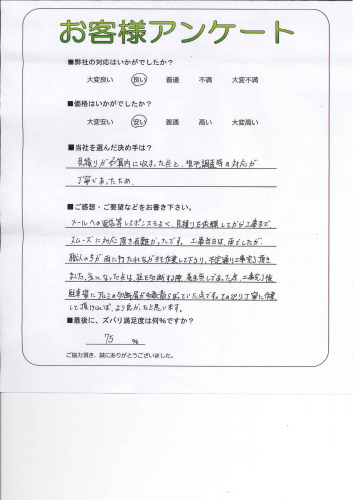 お客様アンケート
■弊社の対応はいかがでしたか?
大変良い 良い 普通 不満 大変不満
■価格はいかがでしたか?
大変安い 安い 普通 高い 大変高い
■当社を選んだ決め手は?
見積りが予算内に収まった点と、現地調査時の対応が
丁寧であったため。
■ご感想・ご要望などをお書き下さい。
メールへの返信等レスポンスもよく、見積りを依頼してから工事まで、
スムーズに対応頂き有難かったです。工事当日は、雨でしたが
職人の方が雨に打たれながらも作業して下さり、予定通り工事完了頂き
ました。気になった点は、柱を切断する際、
駐車場にアルミの切断屑が多数散らばっていた点です。もう少し丁寧に作業
して頂ければ、より良かったと思います。
■最後に、ズバリ満足度は何%ですか?
75 %
ご協力頂き、誠にありがとうございました。